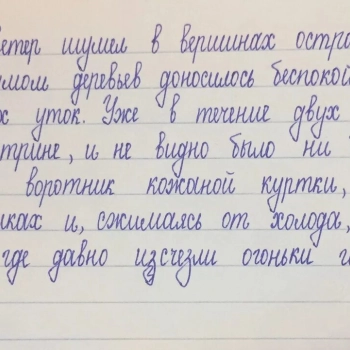 ветер шумел в вершинах остро
умом деревьев доносилось беспокой
х уток. Уже в течение двух
трине, и не видно было ни
воротник кожаной куртки,
иках и, сжимаясь от холода,
где давно изсчезли огоньки г